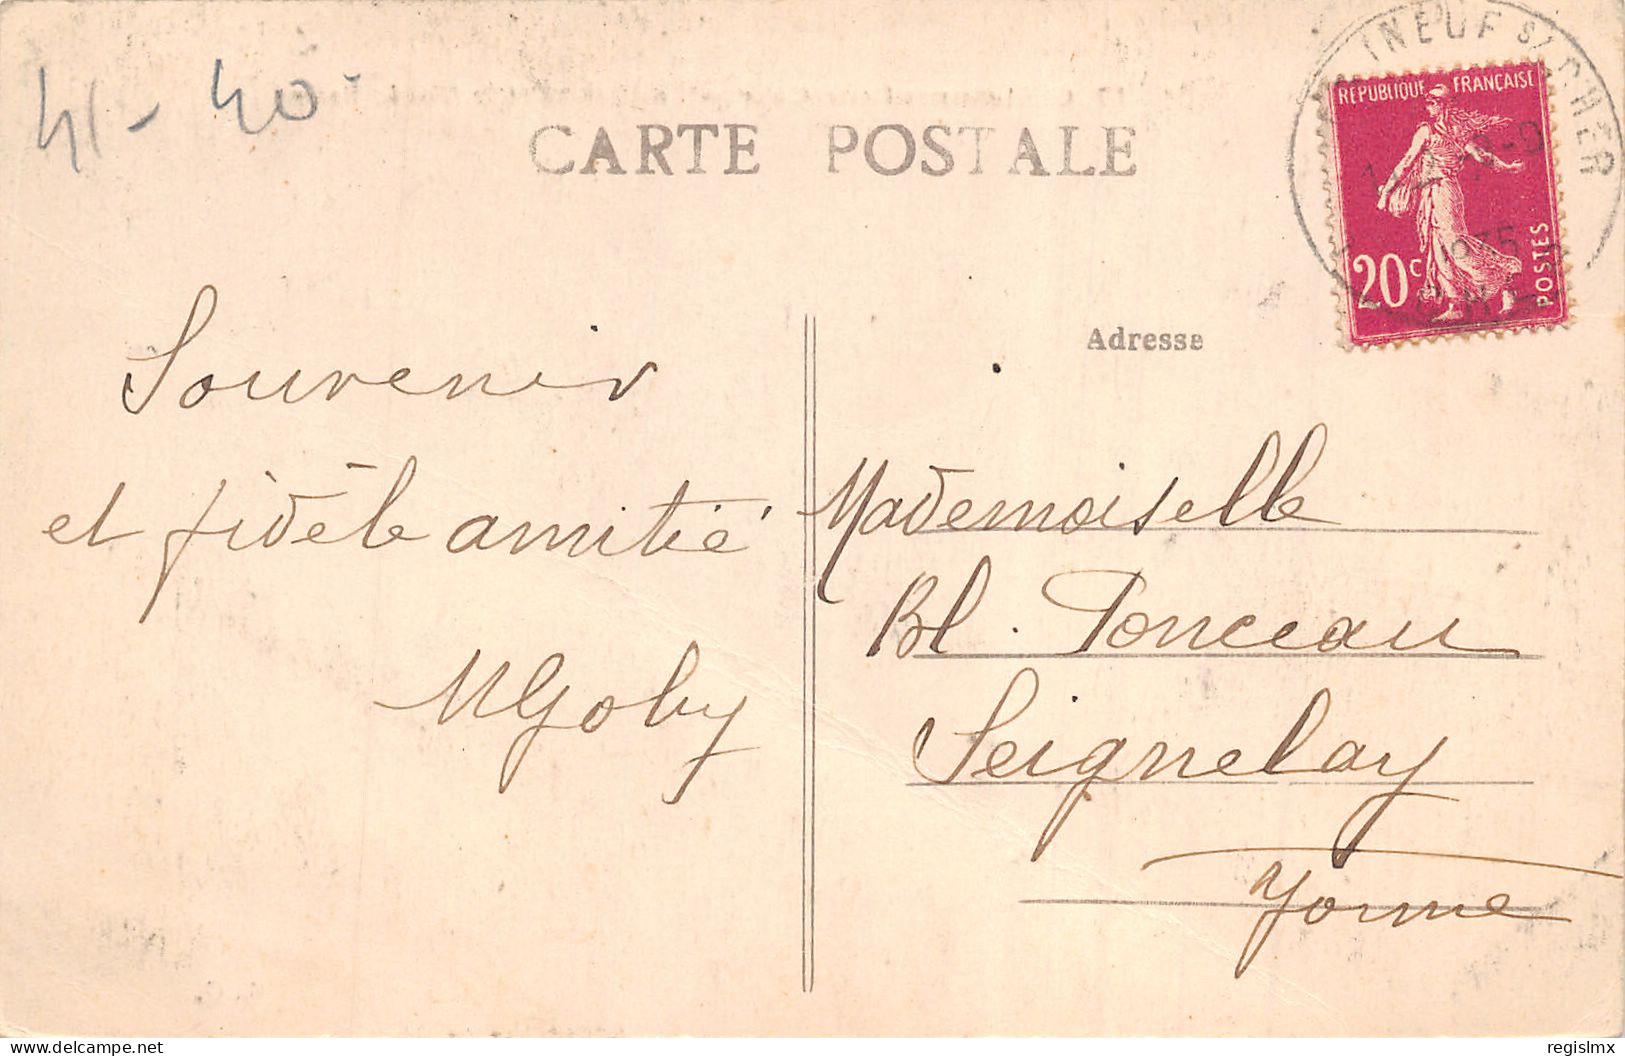 41- 40-
CARTE POSTALE
INEUF S/ CHER
REPUBLIQUE FRANÇAISE
1935
20c
POSTES
Adresse
Souvenir
et fidèle amitié
MGoby
Mademoiselle
Bl. Ponceau
Seignelay
Yonne
www.delcampe.net
regislmx